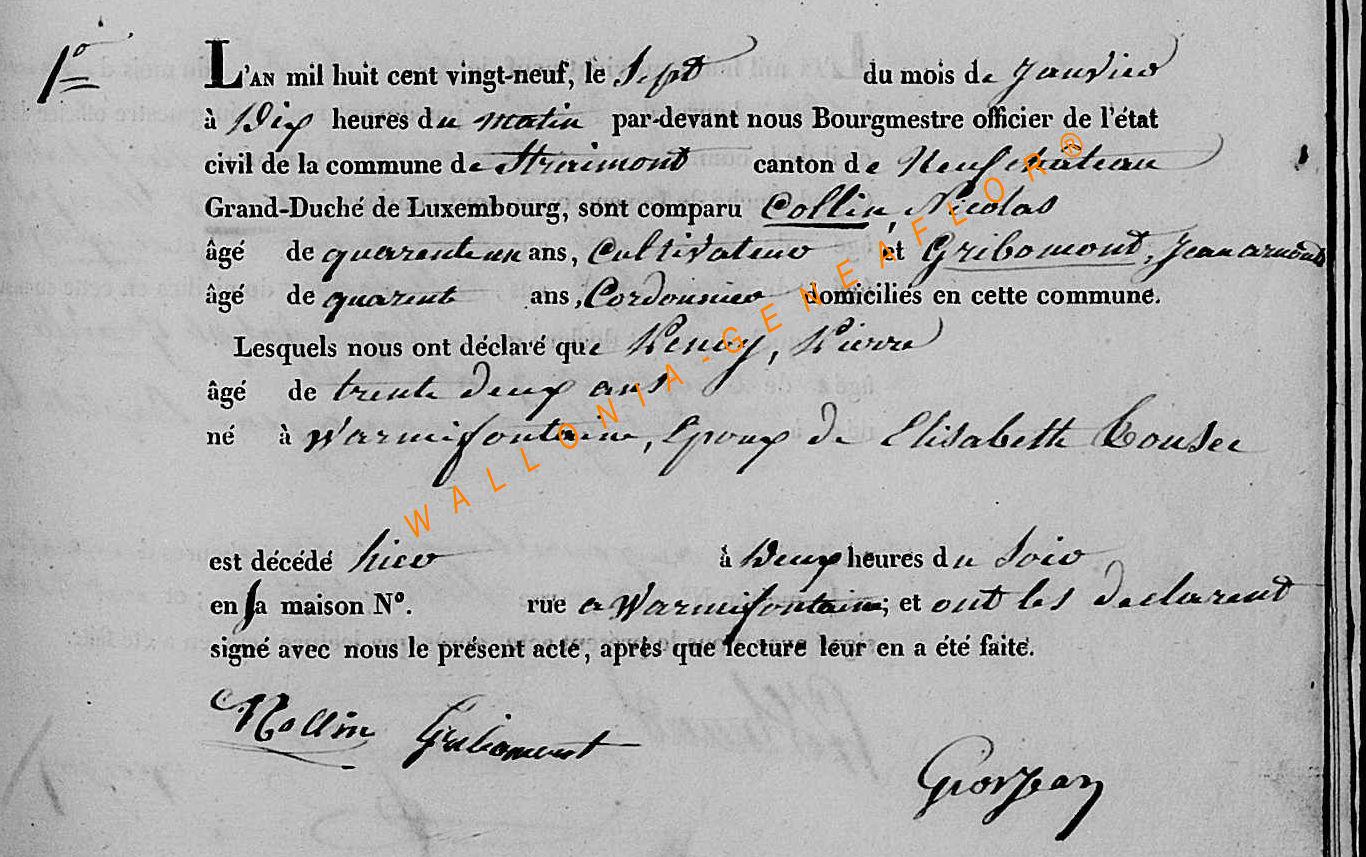 1º
L'AN mil huit cent vingt-neuf, le Sept du mois de Janvier
à Dix heures du matin par-devant nous Bourgmestre officier de l'état
civil de la commune de Straimont canton de Neufchateau
Grand-Duché de Luxembourg, sont comparu Collin, Nicolas
âgé de quarenteun ans, Cultivateur et Gribomont, Jean arnould
âgé de quarent ans, Cordonnier domiciliés en cette commune.
Lesquels nous ont déclaré que Henry, Pierre
âgé de trente deux ans
né à Warmifontaine, Epoux de Elisabeth
est décédé hier à Deux heures du Soir
en Sa maison Nº. rue a Warmifontaine; et ont les declarent
signé avec nous le présent acte, après que lecture leur en a été faite.
NCollin Gribomont
Grosjean
WALLONIA-GENEAFLOR®